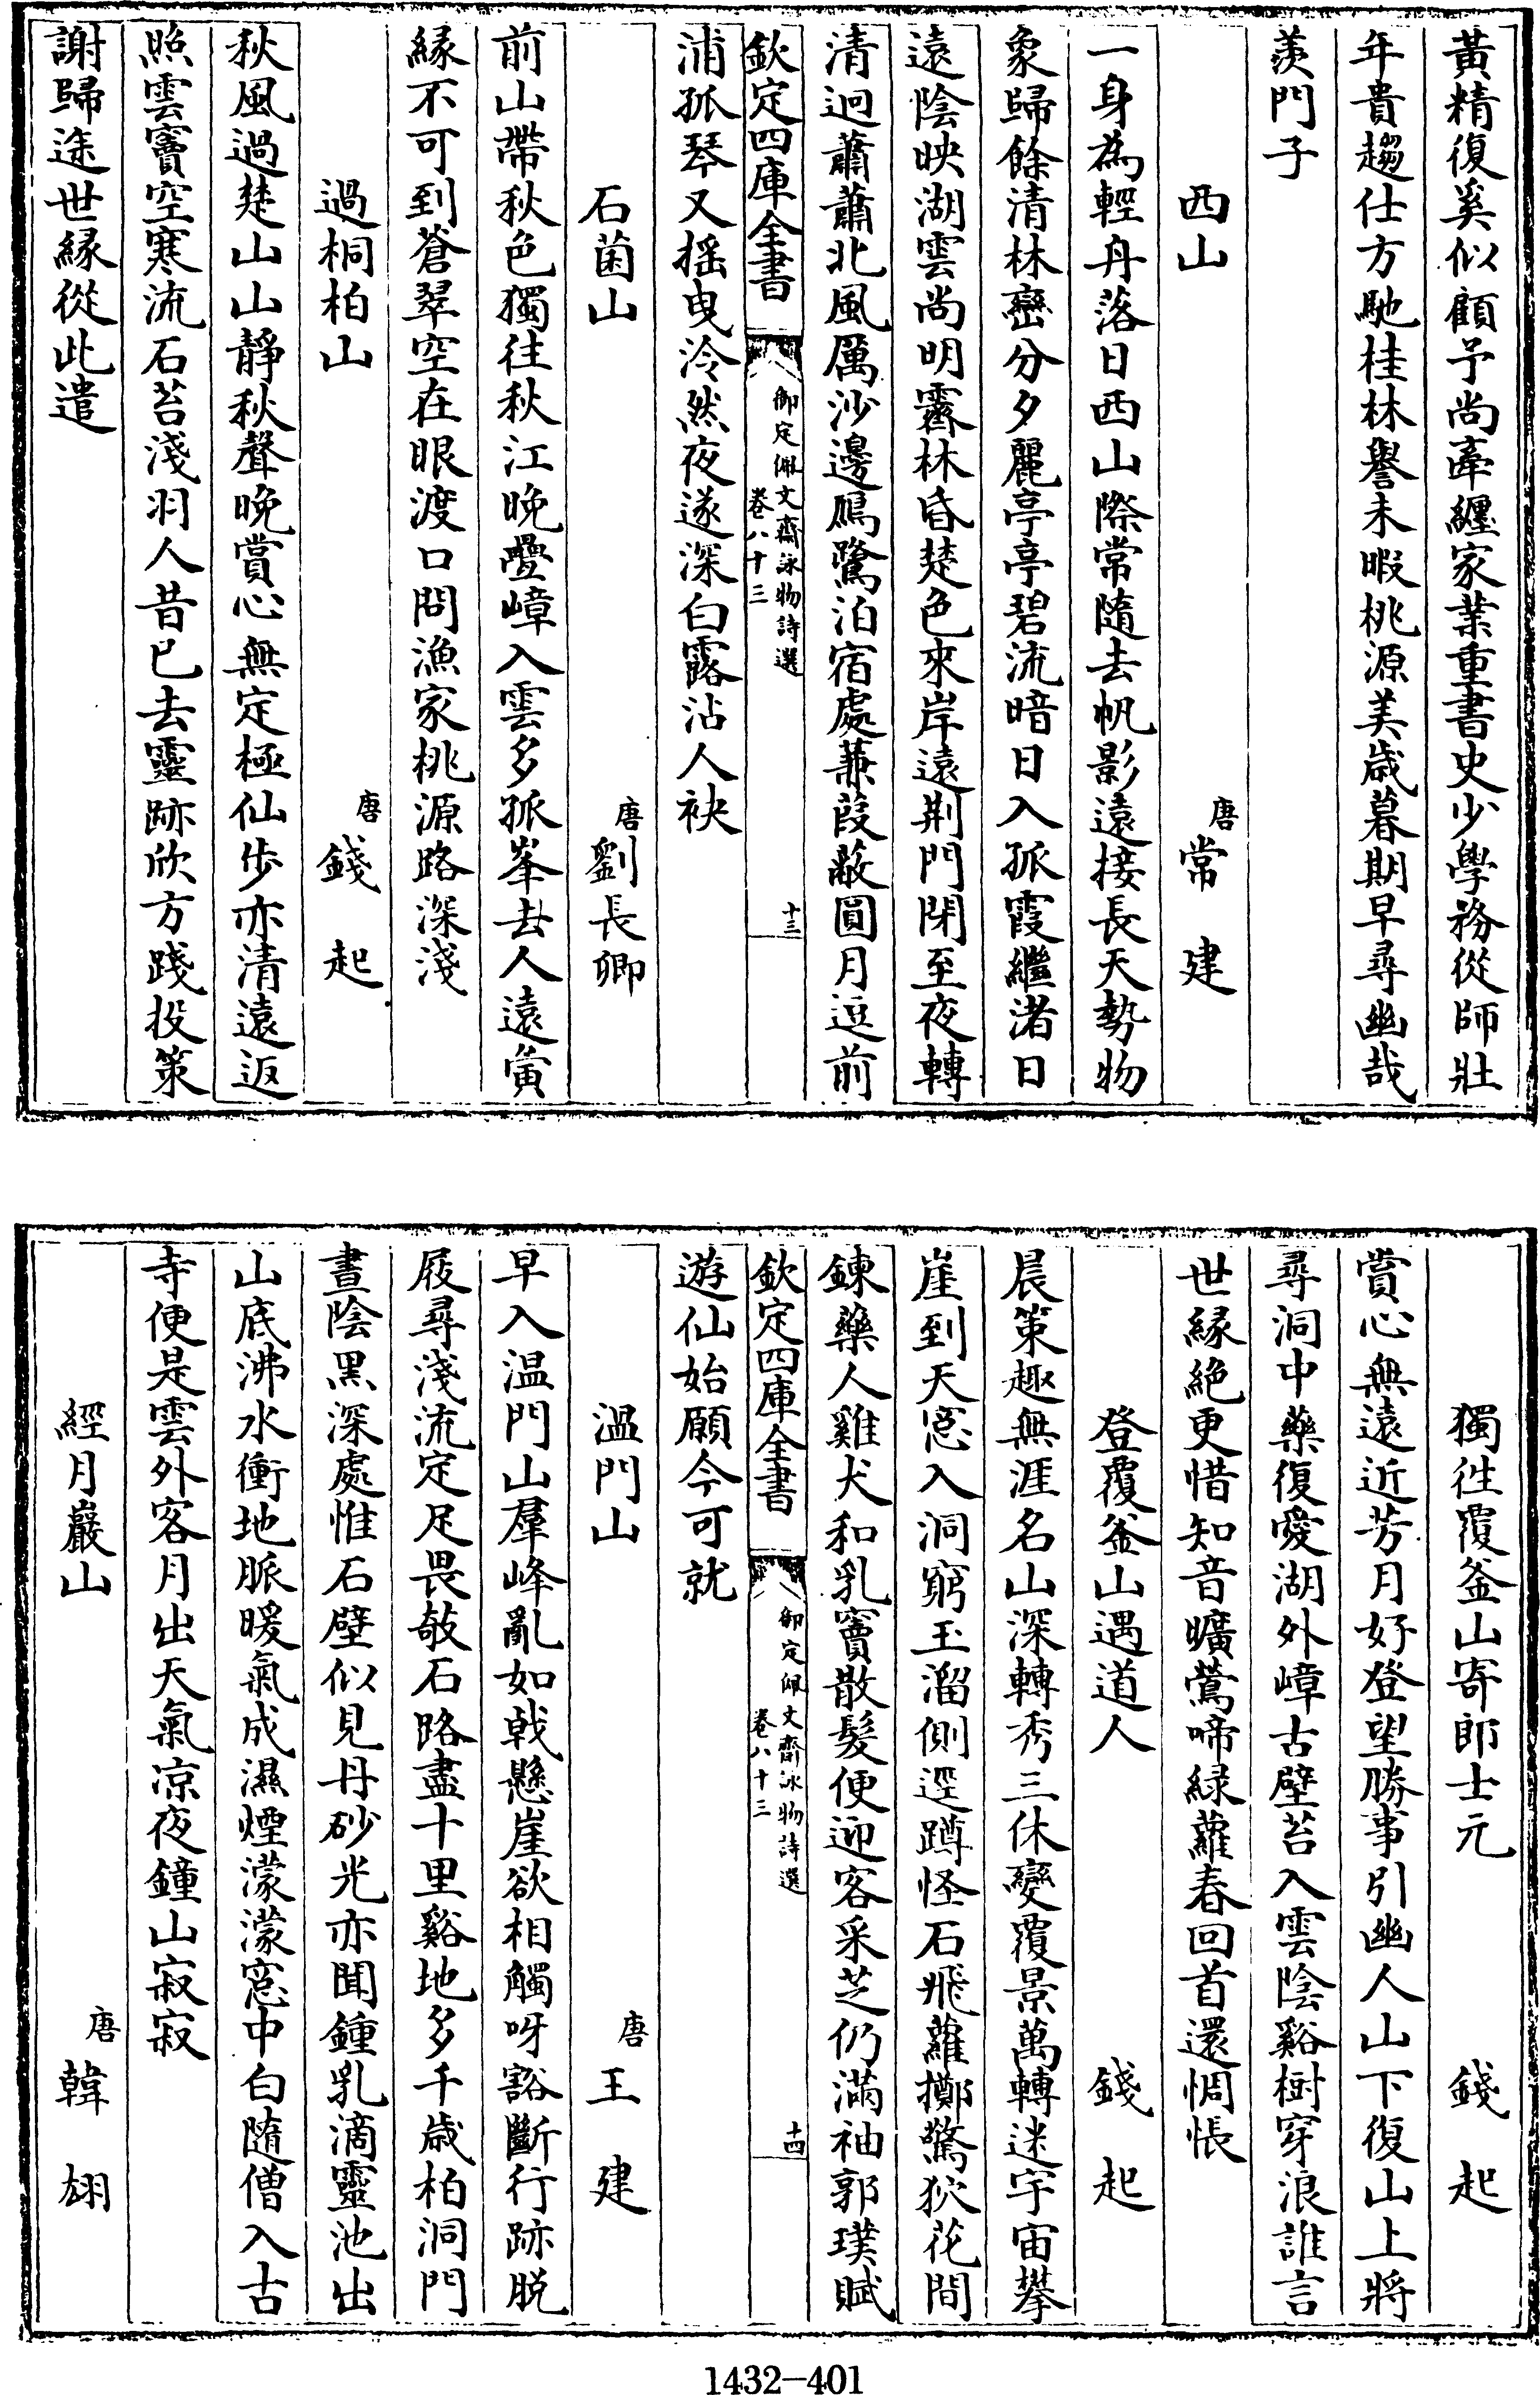 黃精復奚似顧予尚牽纏家業重書史少學務從師壯
年貴趨仕方馳桂林譽未暇桃源美歲暮期早尋幽哉
羨門子
西山 唐 常建
一身為輕舟落日西山際常隨去帆影遠接長天勢物
象歸餘清林巒分夕麗亭亭碧流暗日入孤霞繼渚日
遠陰映湖雲尚明霽林昏楚色來岸遠荆門閉至夜轉
清迥蕭蕭北風厲沙邊鴈鷺泊宿處蒹葭蔽圓月逗前
欽定四庫全書 御定佩文齋詠物詩選 卷八十三 十三
浦孤琴又摇曳泠然夜遂深白露沾人袂
石菌山 唐 劉長卿
前山帶秋色獨往秋江晚疊嶂入雲多孤峯去人遠夤
緣不可到蒼翠空在眼渡口問漁家桃源路深淺
過桐柏山 唐 錢起
秋風過楚山山靜秋聲晚賞心無定極仙步亦清遠返
照雲竇空寒流石苔淺羽人昔已去靈跡欣方踐投策
謝歸途世緣從此遣
獨徃覆釜山寄郎士元 錢起
賞心無遠近芳月好登望勝事引幽人山下復山上將
尋洞中藥復愛湖外嶂古壁苔入雲陰谿樹穿浪誰言
世緣絶更惜知音曠鶯啼緑蘿春回首還惆悵
登覆釜山遇道人 錢起
晨策趣無涯名山深轉秀三休變覆景萬轉迷宇宙攀
崖到天窓入洞窮玉溜側逕蹲怪石飛蘿擲驚狖花間
鍊藥人雞犬和乳竇散髮便迎客采芝仍滿袖郭璞賦
欽定四庫全書 御定佩文齋詠物詩選 卷八十三 十四
遊仙始願今可就
温門山 唐 王建
早入温門山羣峰亂如戟懸崖欲相觸呀豁斷行跡脱
屐尋淺流定足畏攲石路盡十里谿地多千歲柏洞門
晝陰黑深處惟石壁似見丹砂光亦聞鍾乳滴靈池出
山底沸水衝地脈暖氣成濕煙濛濛窓中白隨僧入古
寺便是雲外客月出天氣凉夜鐘山寂寂
經月巖山 唐 韓翃
1432-401